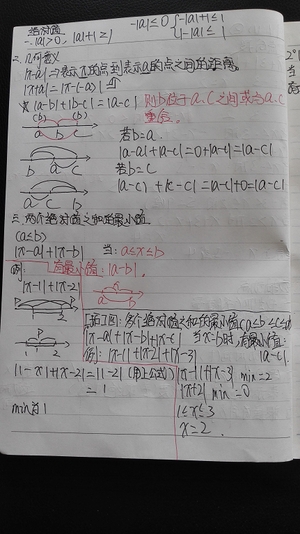 绝对值
-|a|≤0 -|a|+1≤1
|a|≥0, |a|+1≥1
1-|a|≤1
二.几何意义
|x-a|⇒表示x的点到表示a的点之间的距离。
|x+a|=|x-(-a)|
|a-b|+|b-c|=|a-c| 则b位于a.C之间或与a.c重合。
(b) (b)
a b c
若b=a.
|a-a|+|a-c|=0+|a-c|=|a-c|
b a c
若b=c
|a-c|+|c-c|=|a-c|+0=|a-c|
a c b
三.两个绝对值之和的最小值
(a≤b)
|x-a|+|x-b| 当:a≤x≤b
有最小值:|a-b|.
例:
|x-1|+|x-2|
a x b
P
1 2
三个绝对值之和的最小值(a≤b≤c)
|x-a|+|x-b|+|x-c| 当x=b时,有最小值:|a-c|
例:|x-1|+|x-2|+|x-3|
P P
1 2
|1-x|+|x-2|=|1-2|(用上公式)
=1
|x-1|+|x-3| min=2
|x-2| min=0
min为1
1≤x≤3
x=2.